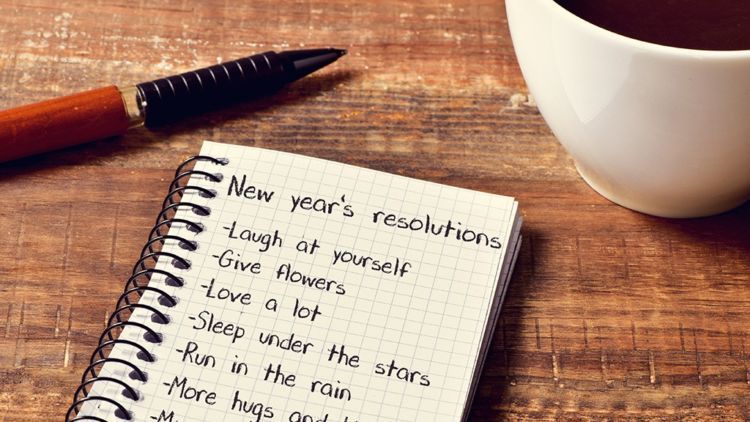 New year's resolutions
-Laugh at yourself
-Give flowers
-Love a lot
-Sleep under the stars
-Run in the rain
-More hugs and